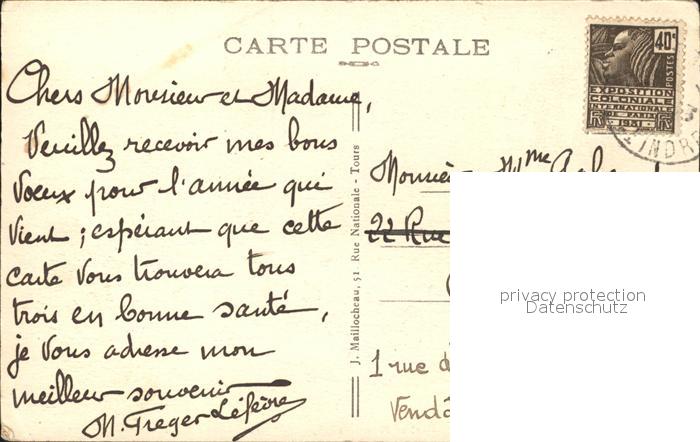 CARTE POSTALE
40c
POSTES
EXPOSITION
COLONIALE
INTERNATIONALE
DE PARIS
1931
RF RF
INDRE
Chers Monsieur et Madame,
Veuillez recevoir mes bons
voeux pour l'année qui
vient ; espérant que cette
carte vous trouvera tous
trois en bonne santé,
je vous adresse mon
meilleur souvenir
M. Treger Lefèvre
J. Maillocheau, 51, Rue Nationale - Tours
Monsieur Mme
22 Rue
1 rue
Vendô
privacy protection
Datenschutz